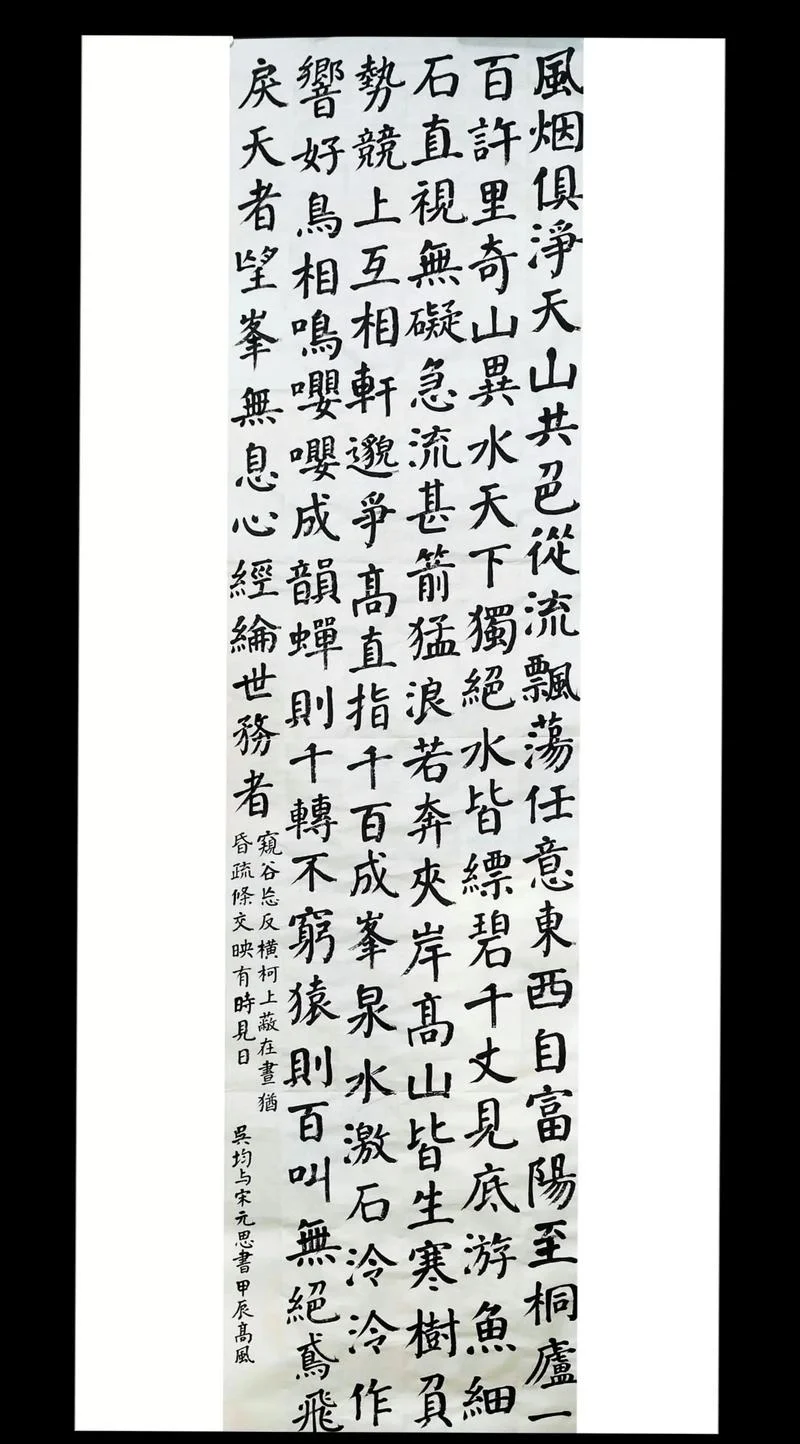 風烟俱淨天山共色從流飄蕩任意東西自富陽至桐廬一
百許里奇山異水天下獨絕水皆縹碧千丈見底游魚細
石直視無礙急流甚箭猛浪若奔夾岸高山皆生寒樹負
勢競上互相軒邈爭高直指千百成峯泉水激石泠泠作
響好鳥相鳴嚶嚶成韻蟬則千轉不窮猿則百叫無絕鳶飛
戾天者望峯無息心經綸世務者
窺谷忘反橫柯上蔽在晝猶
昏疏條交映有時見日
吳均与宋元思書甲辰高風